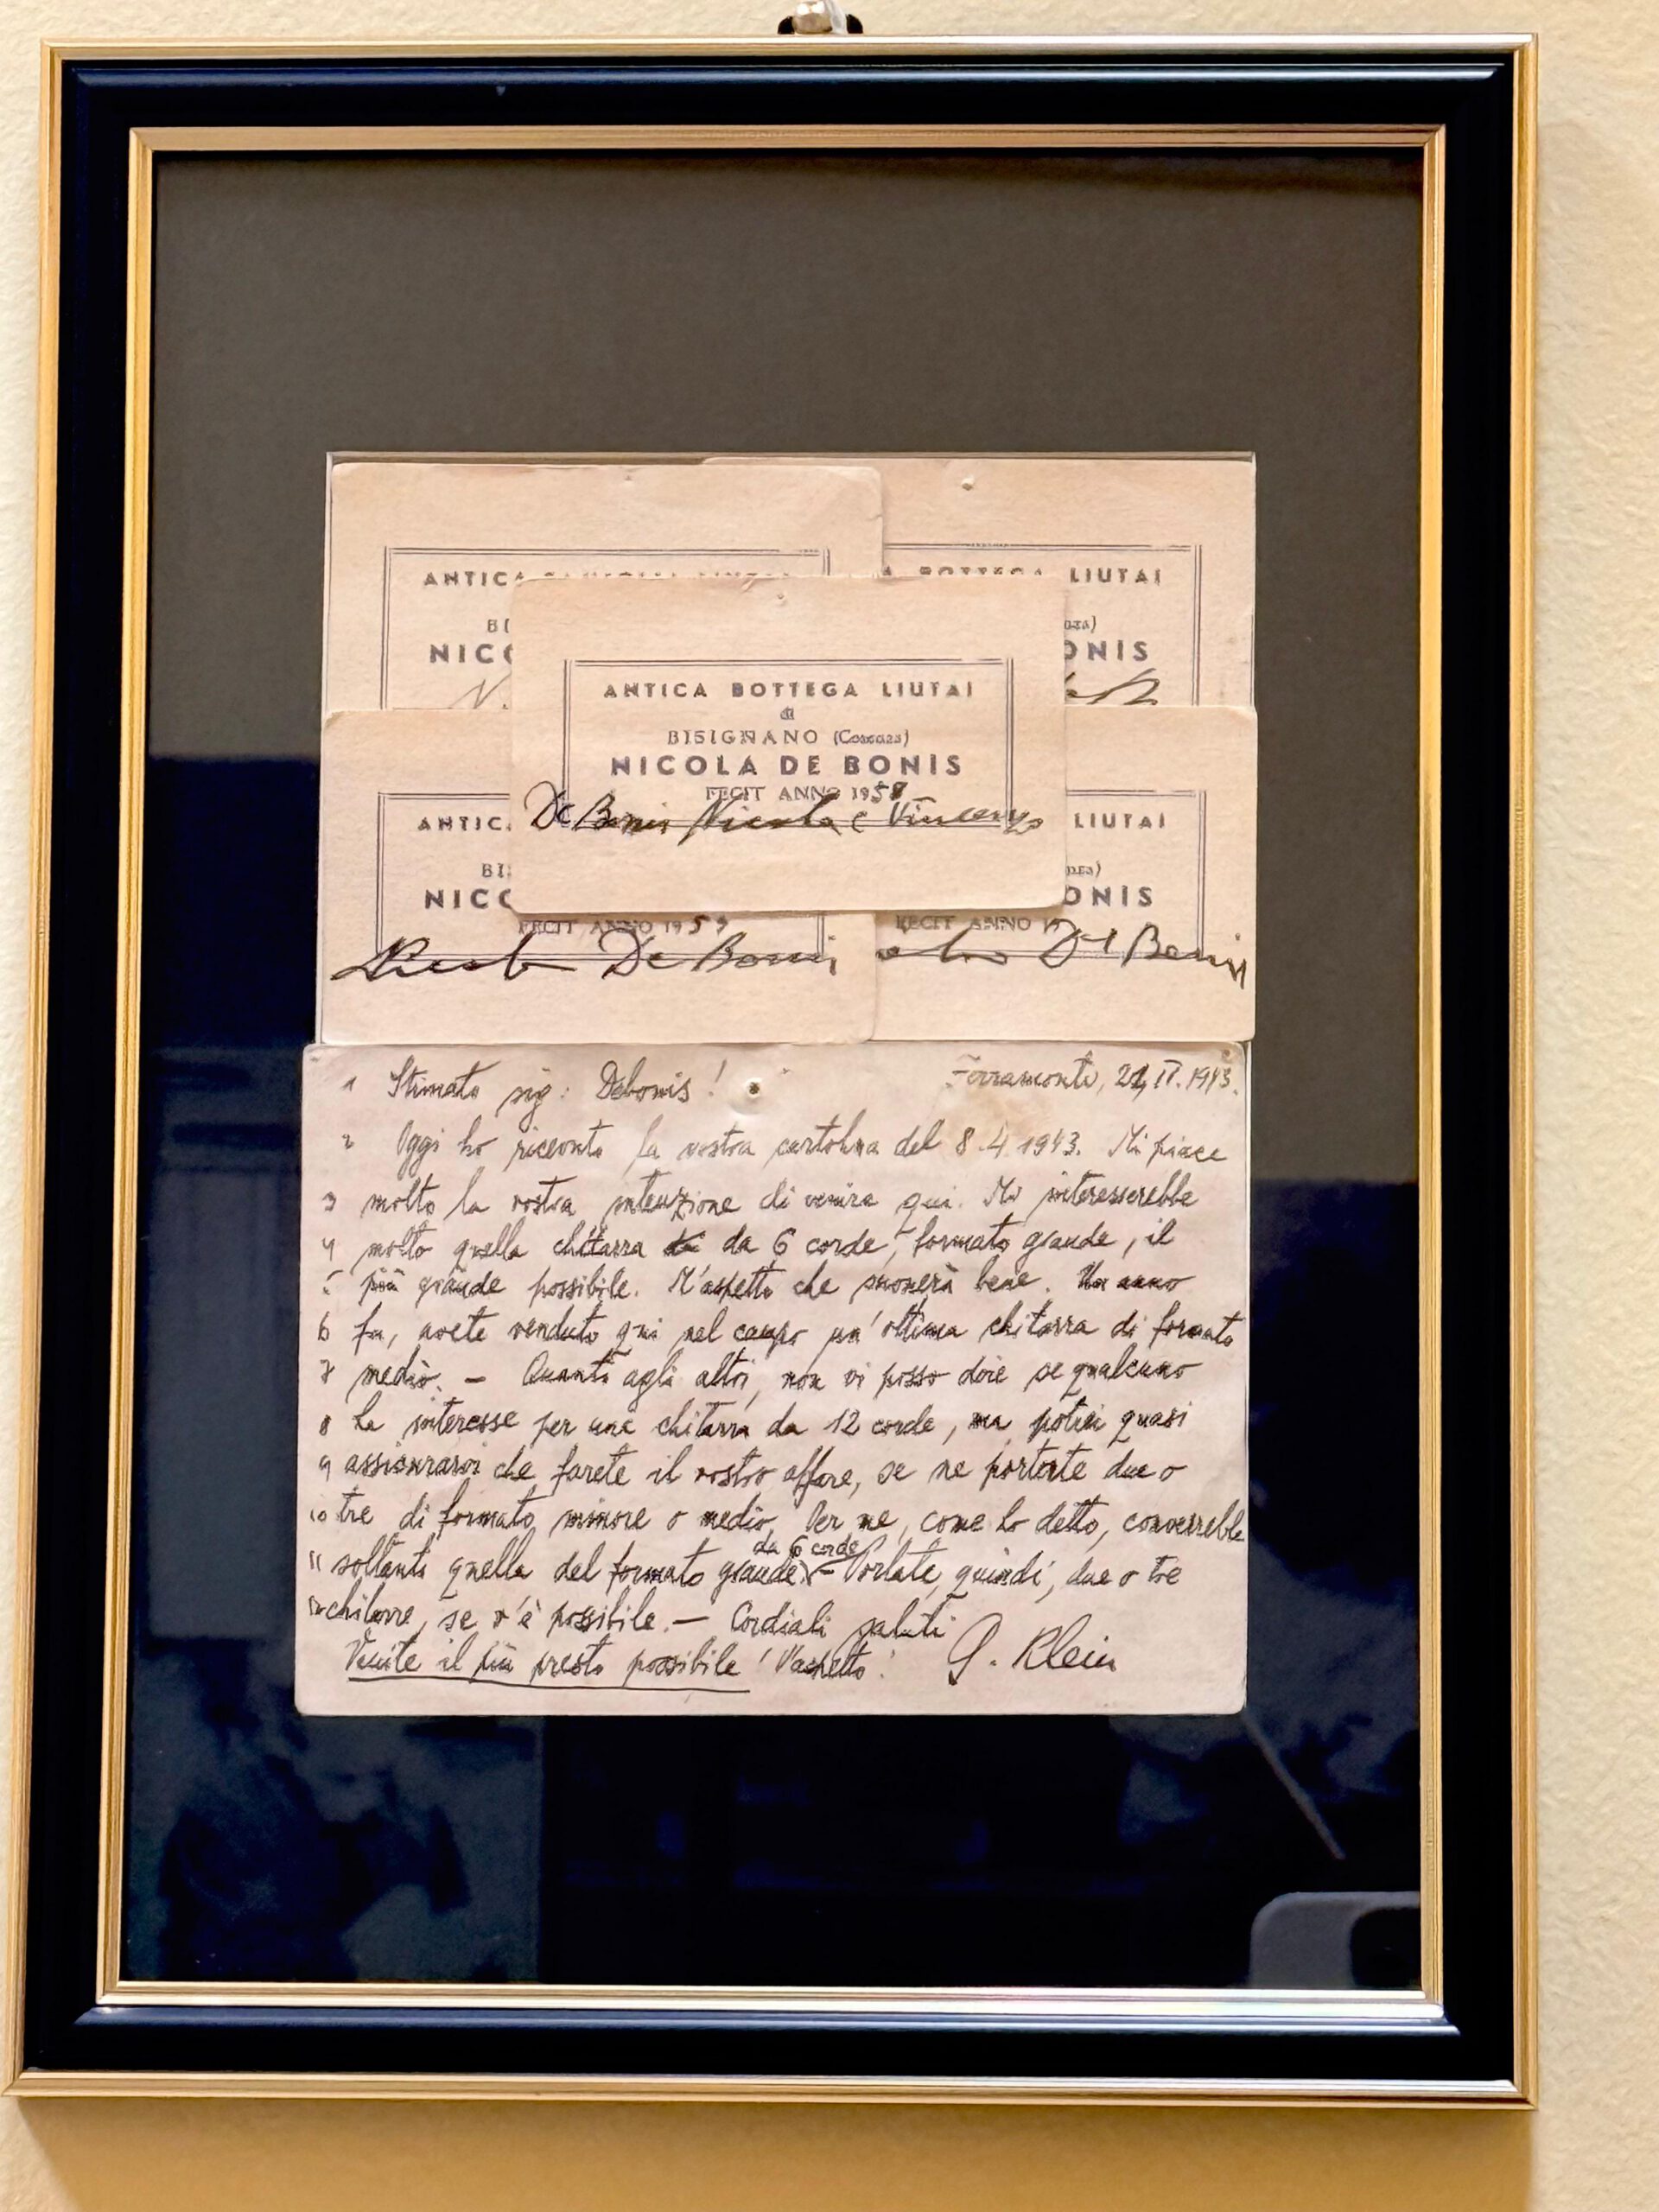 ANTICA
LIUTAI
NICO
ONIS
ANTICA BOTTEGA LIUTAI
di
BISIGNANO (Cosenza)
NICOLA DE BONIS
FECIT ANNO 1958
De Bonis Nicola e Vincenzo
ANTIC
LIUTAI
BI
NICO
ONIS
FECIT ANNO 19
FECIT ANNO 1
De Bonis
De Bonis
1 Stimato sig: Debonis! Ferramonti, 21, IV. 1943.
2 Oggi ho ricevuto la vostra cartolina del 8.4.1943. Mi piace
3 molto la vostra intenzione di venire qui. Mi interesserebbe
4 molto quella chitarra da 6 corde, formato grande, il
5 più grande possibile. M'aspetto che suonerà bene. Un anno
6 fa, avete venduto qui nel campo un'ottima chitarra di formato
7 medio. — Quanto agli altri, non vi posso dire se qualcuno
8 ha interesse per una chitarra da 12 corde, ma potrei quasi
9 assicurarvi che farete il vostro affare, se ne portate due o
10 tre di formato minore o medio. Per me, come ho detto, converrebbe
da 6 corde
11 soltanto quella del formato grande. — Portate, quindi, due o tre
12 chitarre, se v'è possibile. — Cordiali saluti
Venite il più presto possibile! V'aspetto! G. Klein